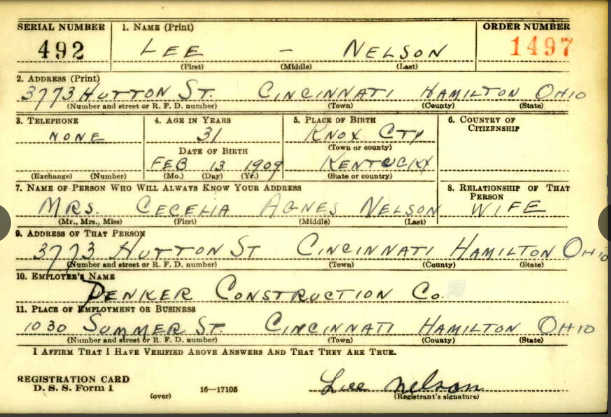 SERIAL NUMBER 1. NAME (Print) ORDER NUMBER
492 LEE - NELSON 1497
(First) (Middle) (Last)
2. ADDRESS (Print)
3773 HUTTON ST. CINCINNATI HAMILTON OHIO
(Number and street or R. F. D. number) (Town) (County) (State)
3. TELEPHONE 4. AGE IN YEARS 5. PLACE OF BIRTH 6. COUNTRY OF CITIZENSHIP
NONE 31 KNOX CTY
DATE OF BIRTH (Town or county)
FEB 13 1909 KENTUCKY
(Exchange) (Number) (Mo.) (Day) (Yr.) (State or country)
7. NAME OF PERSON WHO WILL ALWAYS KNOW YOUR ADDRESS 8. RELATIONSHIP OF THAT PERSON
MRS. CECELIA AGNES NELSON WIFE
(Mr., Mrs., Miss) (First) (Middle) (Last)
9. ADDRESS OF THAT PERSON
3773 HUTTON ST CINCINNATI HAMILTON OHIO
(Number and street or R. F. D. number) (Town) (County) (State)
10. EMPLOYER'S NAME
PENKER CONSTRUCTION CO.
11. PLACE OF EMPLOYMENT OR BUSINESS
1030 SUMMER ST. CINCINNATI HAMILTON OHIO
(Number and street or R. F. D. number) (Town) (County) (State)
I AFFIRM THAT I HAVE VERIFIED ABOVE ANSWERS AND THAT THEY ARE TRUE.
REGISTRATION CARD
D. S. S. Form 1 (over) 16—17105 Lee Nelson
(Registrant's signature)